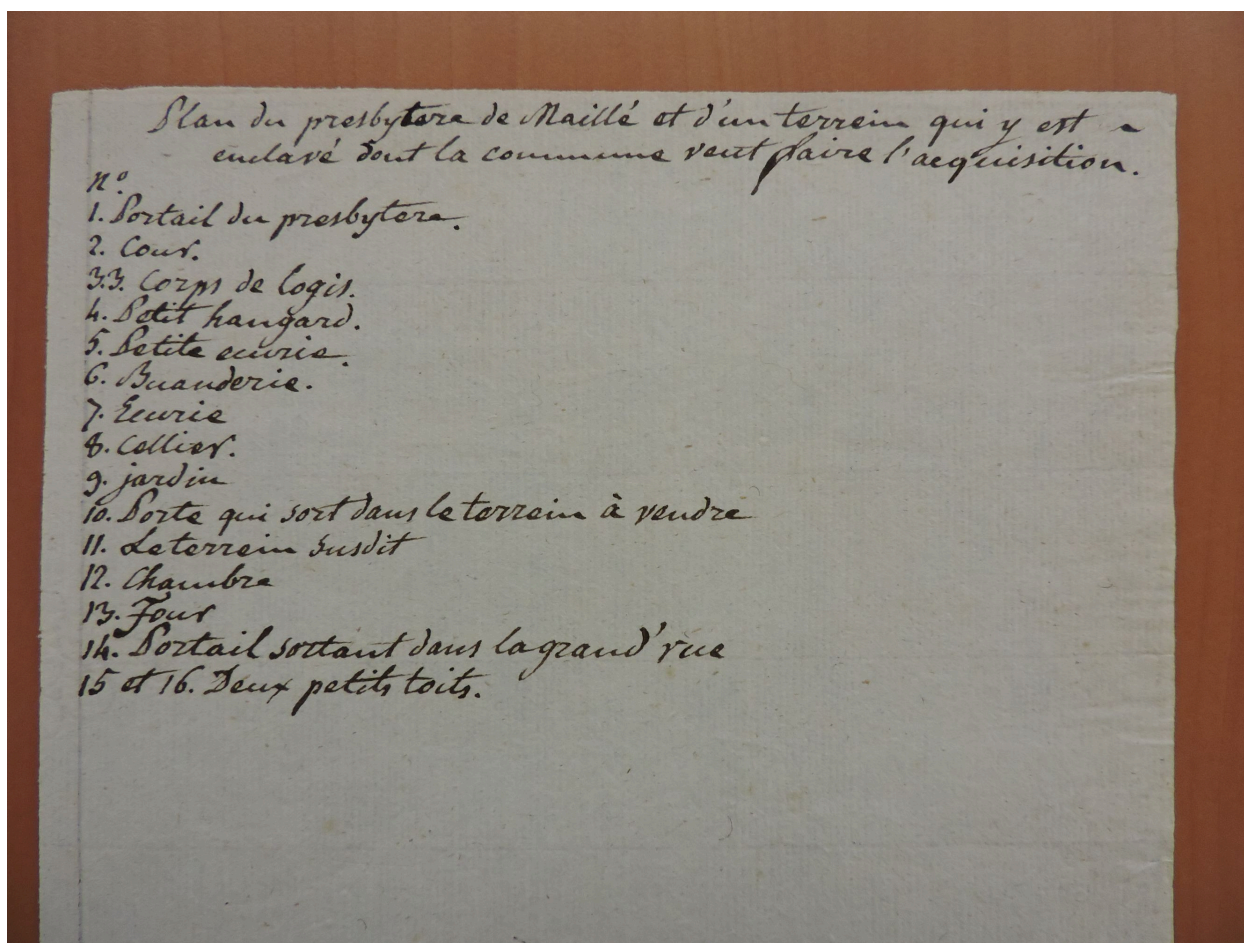 Plan du presbytere de Maillé et d'un terrein qui y est
enclavé dont la commune veut faire l'acquisition.
n.°
1. Portail du presbytere.
2. Cour.
3.3. Corps de logis.
4. Petit hangard.
5. Petite ecurie.
6. Buanderie.
7. Ecurie
8. Cellier.
9. jardin
10. Porte qui sort dans le terrein à vendre
11. Le terrein susdit
12. Chambre
13. Four
14. Portail sortant dans la grand' rue
15 et 16. Deux petits toits.